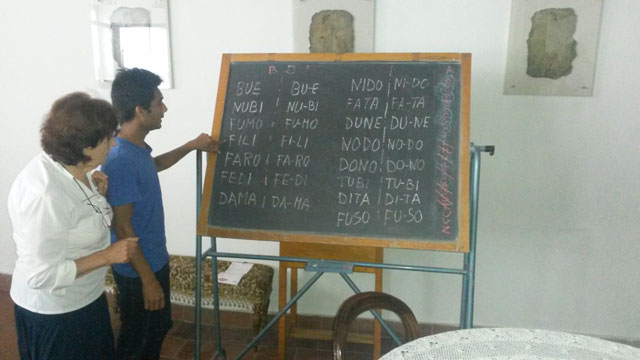 BUE BU-E
NUBI NU-BI
FUMO FU-MO
FILI FI-LI
FARO FA-RO
FEDI FE-DI
DAMA DA-MA
NIDO NI-DO
FATA FA-TA
DUNE DU-NE
NODO NO-DO
DONO DO-NO
TUBI TU-BI
DITA DI-TA
FUSO FU-SO